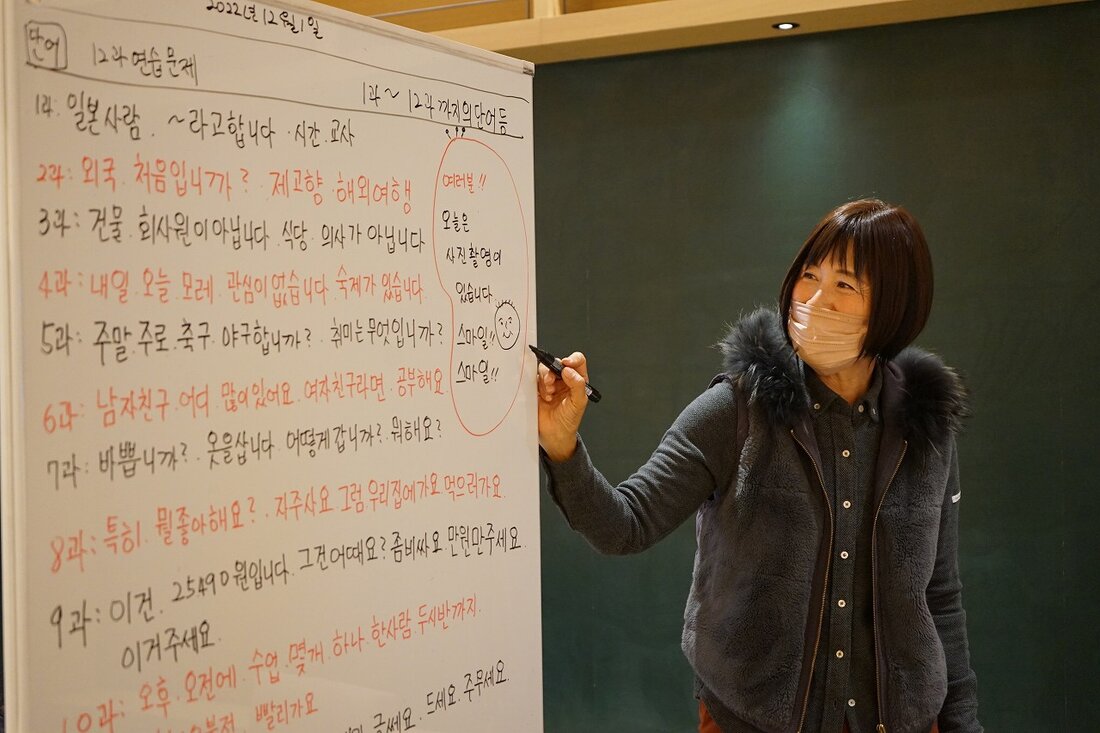 2022년 12월 1일
단어
12과 연습문제
1과~12과까지의 단어등
1과: 일본사람. ~라고합니다. 시간. 교사
2과: 외국. 처음입니까?. 제고향. 해외여행
3과: 건물. 회사원이아닙니다. 식당. 의사가 아닙니다
4과: 내일. 오늘. 모레. 관심이없습니다. 숙제가 있습니다.
5과: 주말. 주로. 축구. 야구합니까?. 취미는무엇입니까?
6과: 남자친구. 어디. 많이있어요. 여자친구라면. 공부해요
7과: 바쁩니까?. 옷을삽니다. 어떻게갑니까?. 뭐해요?
8과: 특히. 뭘좋아해요?. 자주사요. 그럼우리집에가요. 먹으러가요.
9과: 이건. 25490원입니다. 그건어때요? 좀비싸요. 만원만주세요.
이거주세요.
10과: 오후. 오전에. 수업. 몇개. 하나. 한사람. 두시반까지.
빨리가요
글쎄요. 드세요. 주무세요.
여러분!!
오늘은
사진촬영이
있습니다
스마일!!
스마일!!